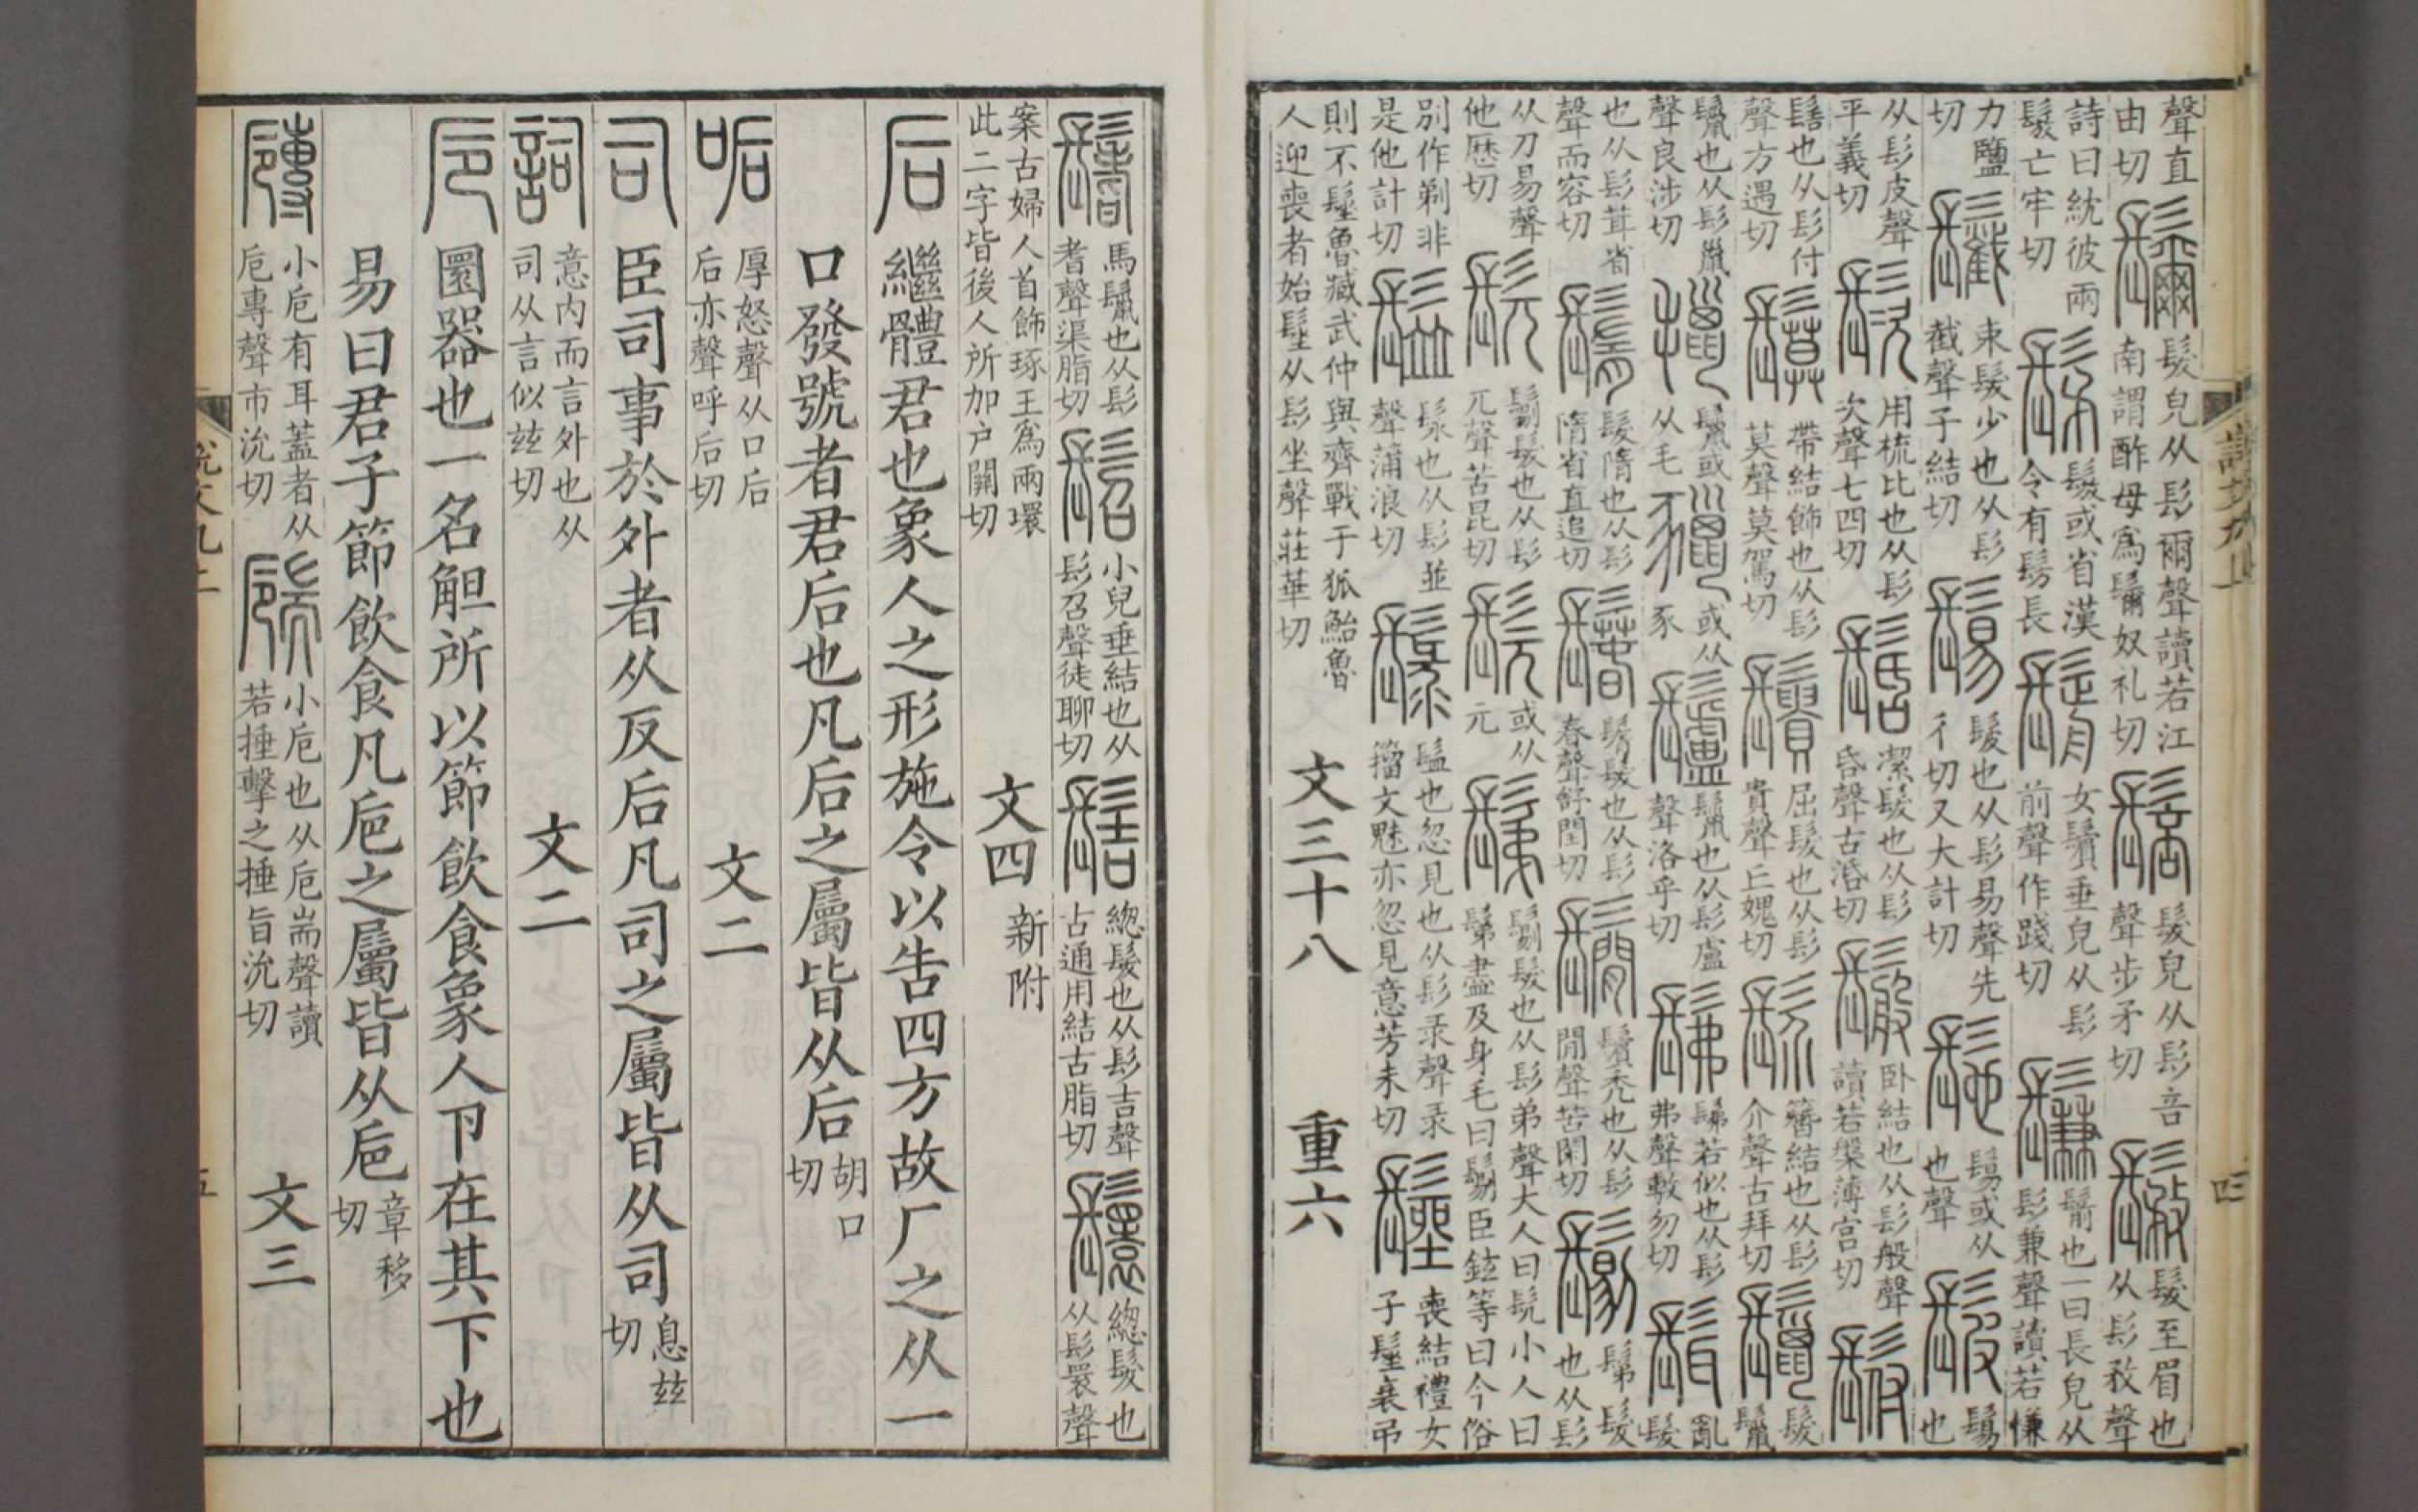 聲直由切𩯨髮皃从髟爾聲讀若江南謂酢母爲𩯨奴礼切䯽髮皃从髟咅聲步矛切䰁髮至眉也从髟敄聲
詩曰紞彼兩䰁亡牢切髳䰁或省漢令有髳長鬋女鬢垂皃从髟前聲作踐切鬑鬋也一曰長皃从髟兼聲讀若慊
力鹽切䰏束髮少也从髟截聲子結切鬄髲也从髟易聲先彳切又大計切髢鬄或从也聲髲鬄也
从髟皮聲平義切䯸用梳比也从髟次聲七四切髺潔髮也从髟昏聲古活切䰉卧結也从髟般聲讀若槃薄官切䯱
髻也从髟付聲方遇切鬕帶結飾也从髟莫聲莫駕切䰎屈髮也从髟貴聲丘媿切䯰簪結也从髟介聲古拜切鬣髮鬣
鬣也从髟巤聲良涉切鬣或从毛或从豕䰕鬣也从髟盧聲洛乎切髴髴若似也从髟弗聲敷勿切髶亂髮
也从髟茸省聲而容切鬌髮隋也从髟隋省直追切鬊鬌髮也从髟春聲舒閏切鬜鬢禿也从髟閒聲苦閑切鬀髮也从髟
从刀易聲他歷切髡髮也从髟兀聲苦昆切髨或从元鬀髮也从髟弟聲大人曰髡小人曰鬀盡及身毛曰臣鉉等曰今俗
別作剃非是他計切髟也从髟並聲蒲浪切也忽見也从髟录聲录籀文魅亦忽見意芳未切髽喪結禮女子髽衰弔
則不髽魯臧武仲與齊戰于狐鮐魯人迎喪者始髽从髟坐聲莊華切 文三十八 重六
鬐馬鬣也从髟耆聲渠脂切髫小兒垂結也从髟召聲徒聊切髻總髮也从髟吉聲古通用結古脂切鬟總髮也从髟睘聲
案古婦人首飾琢玉爲兩環此二字皆後人所加户關切 文四 新附
后繼體君也象人之形施令以告四方故厂之从一
口發號者君后也凡后之屬皆从后胡口切
㖃厚怒聲从口后后亦聲呼后切 文二
司臣司事於外者从反后凡司之屬皆从司息兹切
詞意内而言外也从司从言似兹切 文二
卮圜器也一名觛所以節飲食象人卪在其下也
易曰君子節飲食凡卮之屬皆从卮章移切
𦓝小卮有耳蓋者从卮專聲市沇切𦓔小卮也从卮耑聲讀若捶擊之捶旨沇切 文三